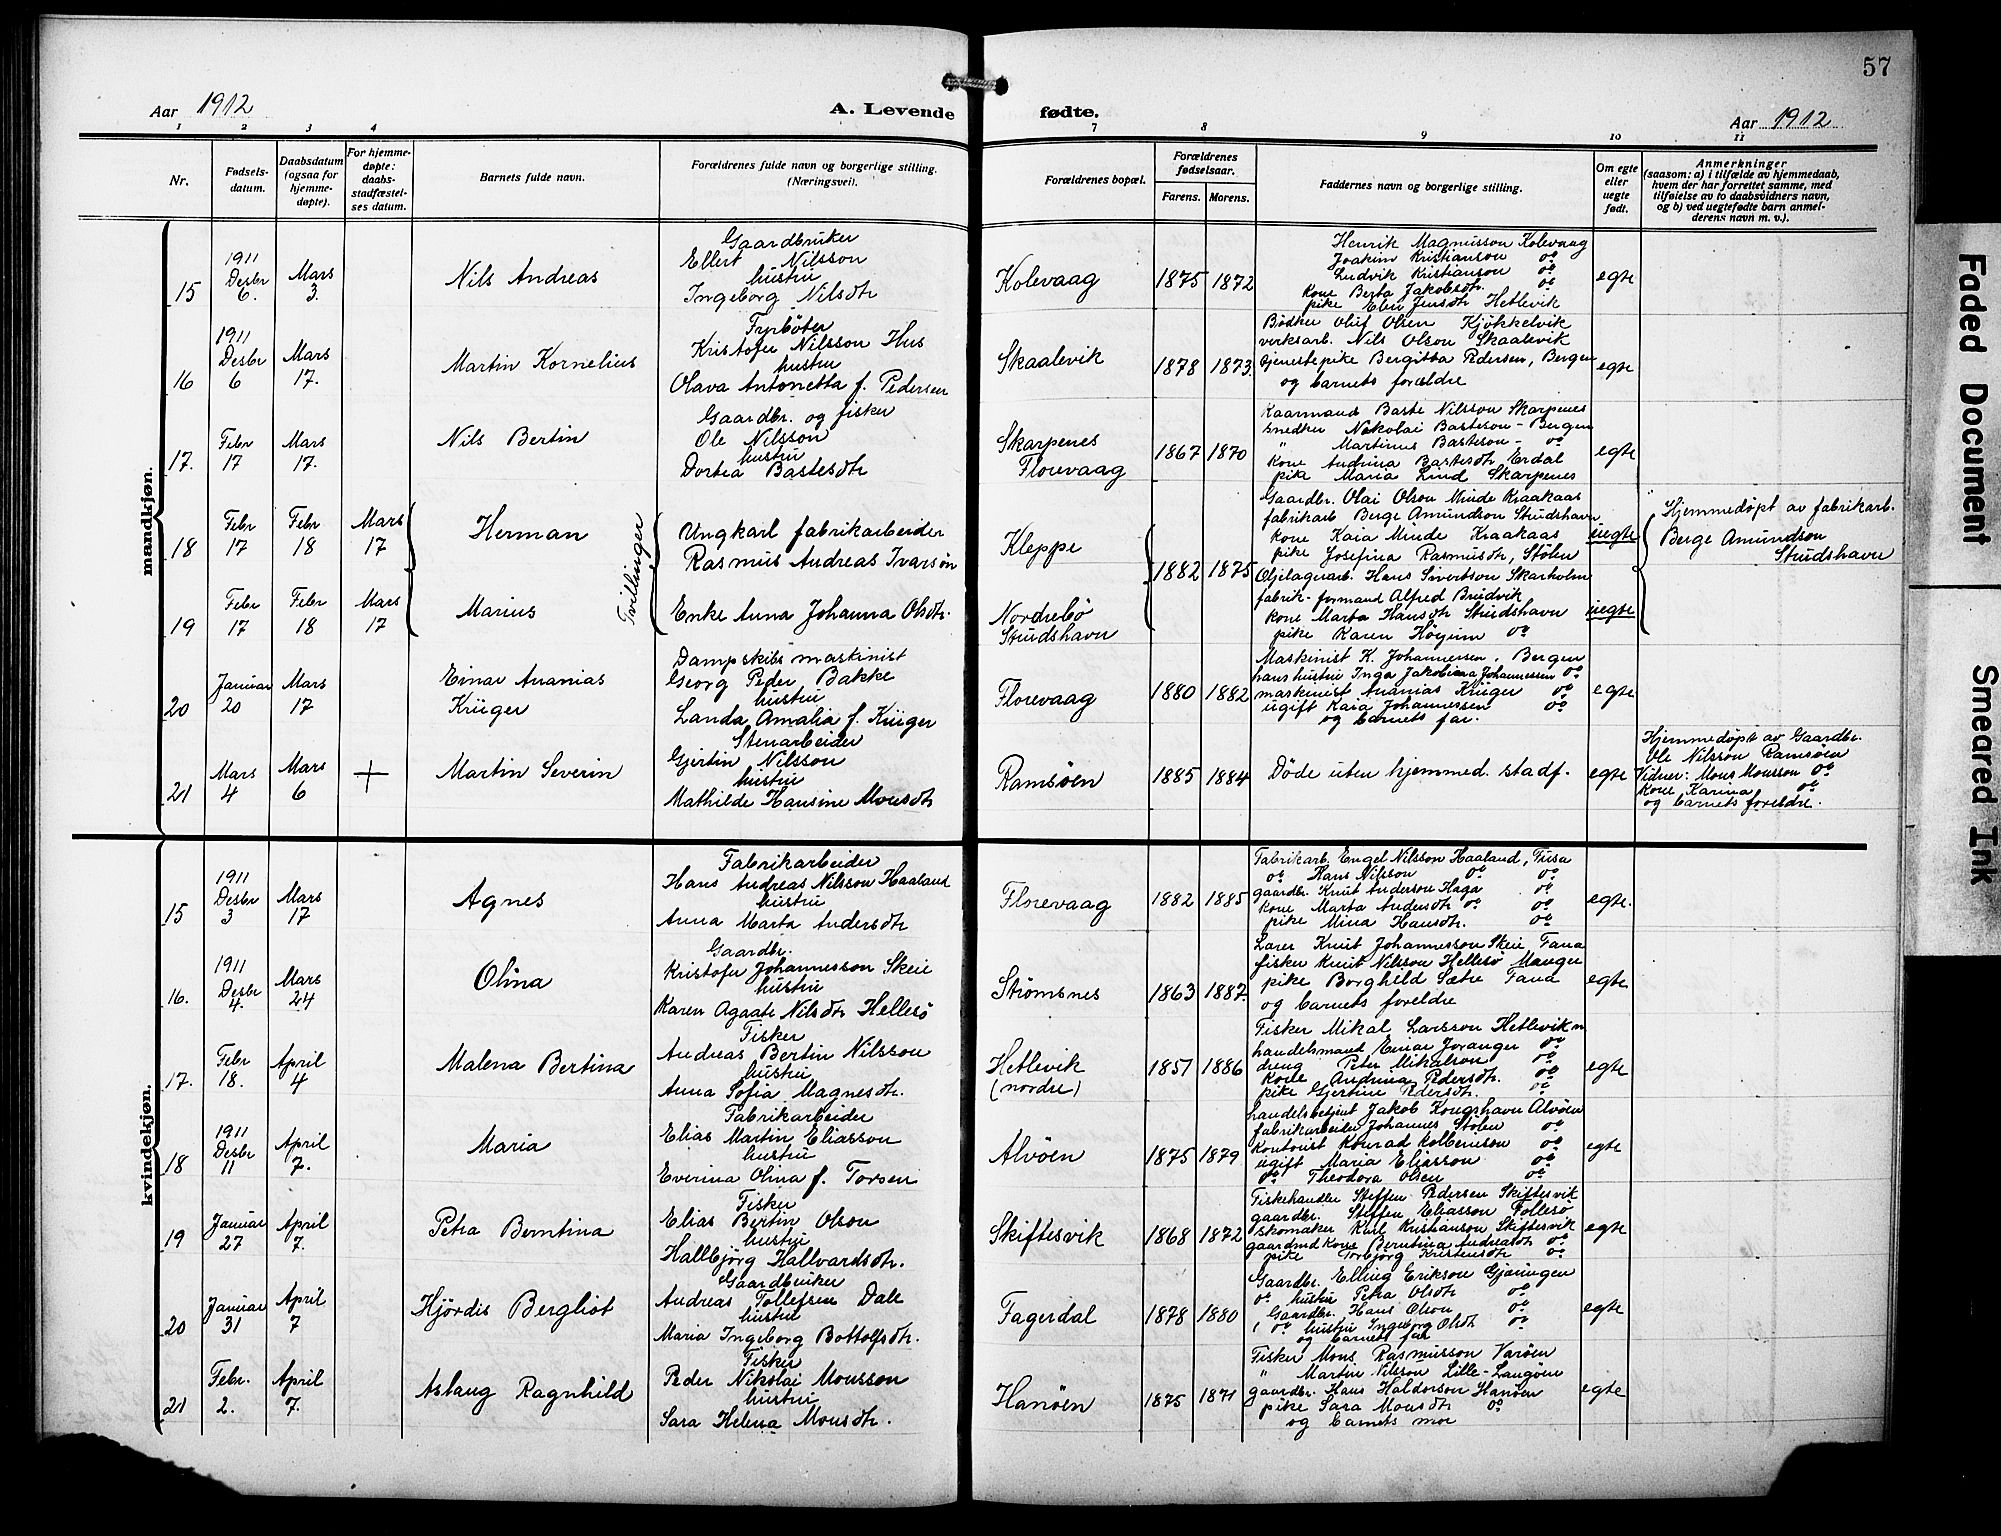 57
Aar 1912
A. Levende fødte.
Aar 1912
1 2 3 4 7 8 9 10 11
Nr.
Fødsels-
datum.
Daabsdatum
(ogsaa for
hjemme-
døpte).
For hjemme-
døpte:
daabs-
stadfæstel-
ses datum.
Barnets fulde navn.
Forældrenes fulde navn og borgerlige stilling.
(Næringsvei).
Forældrenes bopæl.
Forældrenes
fødselsaar.
Farens. Morens.
Faddernes navn og borgerlige stilling.
Om egte
eller
uegte
født.
Anmerkninger
(saasom: a) i tilfælde av hjemmedaab,
hvem der har forrettet samme, med
tilføielse av to daabsvidners navn,
og b) ved uegtefødte barn anmel-
derens navn m. v.).
mandkjøn.
15
1911
Desbr
6.
Mars
3.
Nils Andreas
Gaardbruker
Ellert Nilsson
hustru
Ingeborg Nilsdtr
Kolevaag
1875 1872
Henrik Magnusson Kolevaag
Joakim Kristianson do
Ludvik Kristianson do
Kone Berta Jakobsdtr. do
pike Elen Jensdtr Hetlevik
egte
16
1911
Desbr
6
Mars
17.
Martin Kornelius
Fyrbøter
Kristofer Nilsson Hus
hustru
Olava Antonetta f. Pedersen
Skaalevik
1878 1873.
Bødker Oluf Olsen Kjøkkelvik
verksarb. Nils Olson Skaalevik
tjenestepike Bergitta Pedersen, Bergen
og barnets forældre
egte
17.
Febr
17
Mars
17.
Nils Bertin
Gaardbr. og fisker
Ole Nilsson
hustru
Dortea Bastesdtr
Skarpenes
Florevaag
1867 1870
Kaarmand Baste Nilsson Skarpenes
snedker Nikolai Basteson - Bergen
" Martinus Basteson - do
Kone Andrina Bastesdtr Erdal
pike Maria Lind Skarpenes
egte
18
Febr
17
Febr
18
Mars
17
Herman
Tvillinger
Ungkarl fabrikarbeider
Rasmus Andreas Ivarson
Kleppe
1882 1875
Gaardbr. Olai Olson Minde Kraakaas
fabrikarb Berge Amundson Strudshavn
Kone Kaia Minde Kraakaas
pike Josefina Rasmusdtr, Stølen
uegte
Hjemmedøpt av fabrikarb.
Berge Amundson
Strudshavn
19
Febr
17
Febr
18
Mars
17
Marius
Enke Anna Johanna Olsdtr.
Nordrebø
Strudshavn
Oljelagerarb. Hans Sivertson Skarholm
fabrik-formand Alfred Brudvik
Kone Marta Hansdtr Strudshavn
pike Karen Høyum do
uegte
20
Januar
20
Mars
17
Einar Ananias
Krüger
Dampskibs maskinist
Georg Peder Bakke
hustru
Landa Amalia f. Krüger
Florevaag
1880 1882
Maskinist K. Johannessen, Bergen
hans hustru Inga Jakobiana Johannessen do
maskinist Ananias Krüger do
ugift Kaia Johannessen do
og barnets far.
egte
21
Mars
4
Mars
6
+
Martin Severin
Stenarbeider
Gjertin Nilsson
hustru
Mathilde Hansine Monsdtr
Ramsøen
1885 1884
Døde uten hjemmed. stadf.
egte
Hjemmedøpt av Gaardbr.
Ole Nilsson Ramsøen
Vidner: Mons Monsson do
Kone Karina do
og barnets foreldre.
kvindekjøn.
15
1911
Desbr
3
Mars
17
Agnes
Fabrikarbeider
Hans Andreas Nilsson Haaland
hustru
Anna Marta Andersdtr
Florevaag
1882 1885
Fabrikarb. Engel Nilsson Haaland, Fusa
do Hans Nilsson do do
gaardbr. Knut Anderson Haga do
Kone Marta Andersdtr do do
pike Mina Hansdtr. do
egte.
16.
1911
Desbr
4.
Mars
24
Olina
Gaardbr.
Kristofer Johannesson Skeie
hustru
Karen Agaate Nilsdtr Hellesø
Strømsnes
1863 1887.
Lærer Knut Johannesson Skeie Fana
fisker Knut Nilsson Hellesø Manger
pike Borghild Sætre Fana
og barnets foreldre
egte
17.
Febr
18.
April
4
Malena Bertina
Fisker
Andreas Bertin Nilsson
hustru
Anna Sofia Magnesdtr.
Hetlevik
(nordre)
1857 1886
Fisker Mikal Larsson Hetlevik n
handelsmand Einar Joranger do
dreng Peter Mikalson do
Kone Andrina Pedersdtr. do
pike Gjertine Pedersdtr. do
egte
18
1911
Desbr
11
April
7.
Maria
Fabrikarbeider
Elias Martin Eliasson
hustru
Everina Olina f. Torsen
Alvøen
1875 1879
handelsbetjent Jakob Kongshavn Alvøen
fabrikarbeider Johannes Stølen do
Kontorist Konrad Kolbeinson do
ugift Maria Eliasson do
do Theodora Olsen do
egte
19
Januar
27
April
7.
Petra Berntina
Fisker
Elias Bertin Olson
hustru
Hallbjørg Hallvardsdtr.
Skiftesvik
1868 1872
Fiskehandler Steffen Pedersen Skiftesvik
gaardbr. Steffen Eliasson Follesø
skomaker Karl Kristianson Skiftesvik
gaardmd Kone Berntina Andreasdtr do
pike Torbjørg Kristensdtr do
egte
20
Januar
31
April
7
Hjørdis Bergliot
Gaardbruker
Andreas Tollefsen Dale
hustru
Maria Ingeborg Bottolfsdtr.
Fagerdal
1878 1880
Gaardbr. Elling Erikson Gjøringen
do hustru Petra Olsdtr do
Gaardbr. Hans Olson do
do hustru Ingeborg Olsdtr do
og barnets far
egte
21
Febr.
2.
April
7.
Aslaug Ragnhild
Fisker
Peder Nikolai Monsson
hustru
Sara Helena Monsdtr.
Hanøen
1875 1871
Fisker Mons Rasmusson Varøen
" Martin Nilsson Lille-Langøen
gaardbr. Hans Haldorson Hanøen
pike Sara Monsdtr do
og barnets mor
egte
Faded Document
Smeared Ink